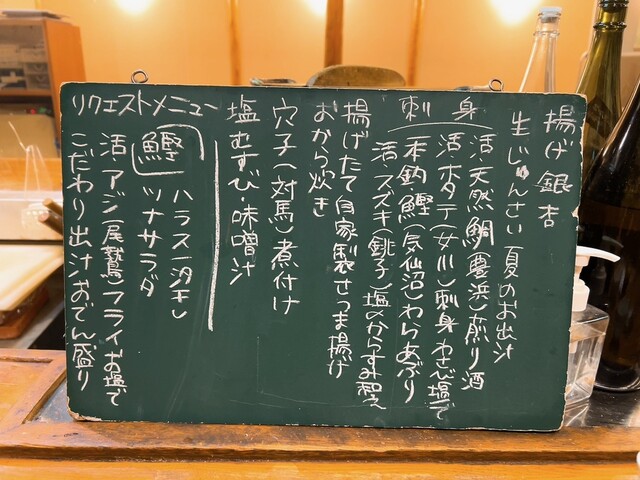 揚げ銀杏
生じゅんさい 夏のお出汁
刺身
活・天然鯛(豊浜)煎り酒
活 ホタテ(女川)刺身 わさび塩で
一本釣・鰹(気仙沼)わらあぶり
活 スズキ(銚子)塩〆からすみ和え
揚げたて自家製さつま揚げ
おから炊き
穴子(対馬)煮付け
塩むすび・味噌汁
リクエストメニュー
鰹
ハラス一汐干し
ツナサラダ
活 アジ(尾鷲)フライ お塩で
こだわり出汁おでん盛り